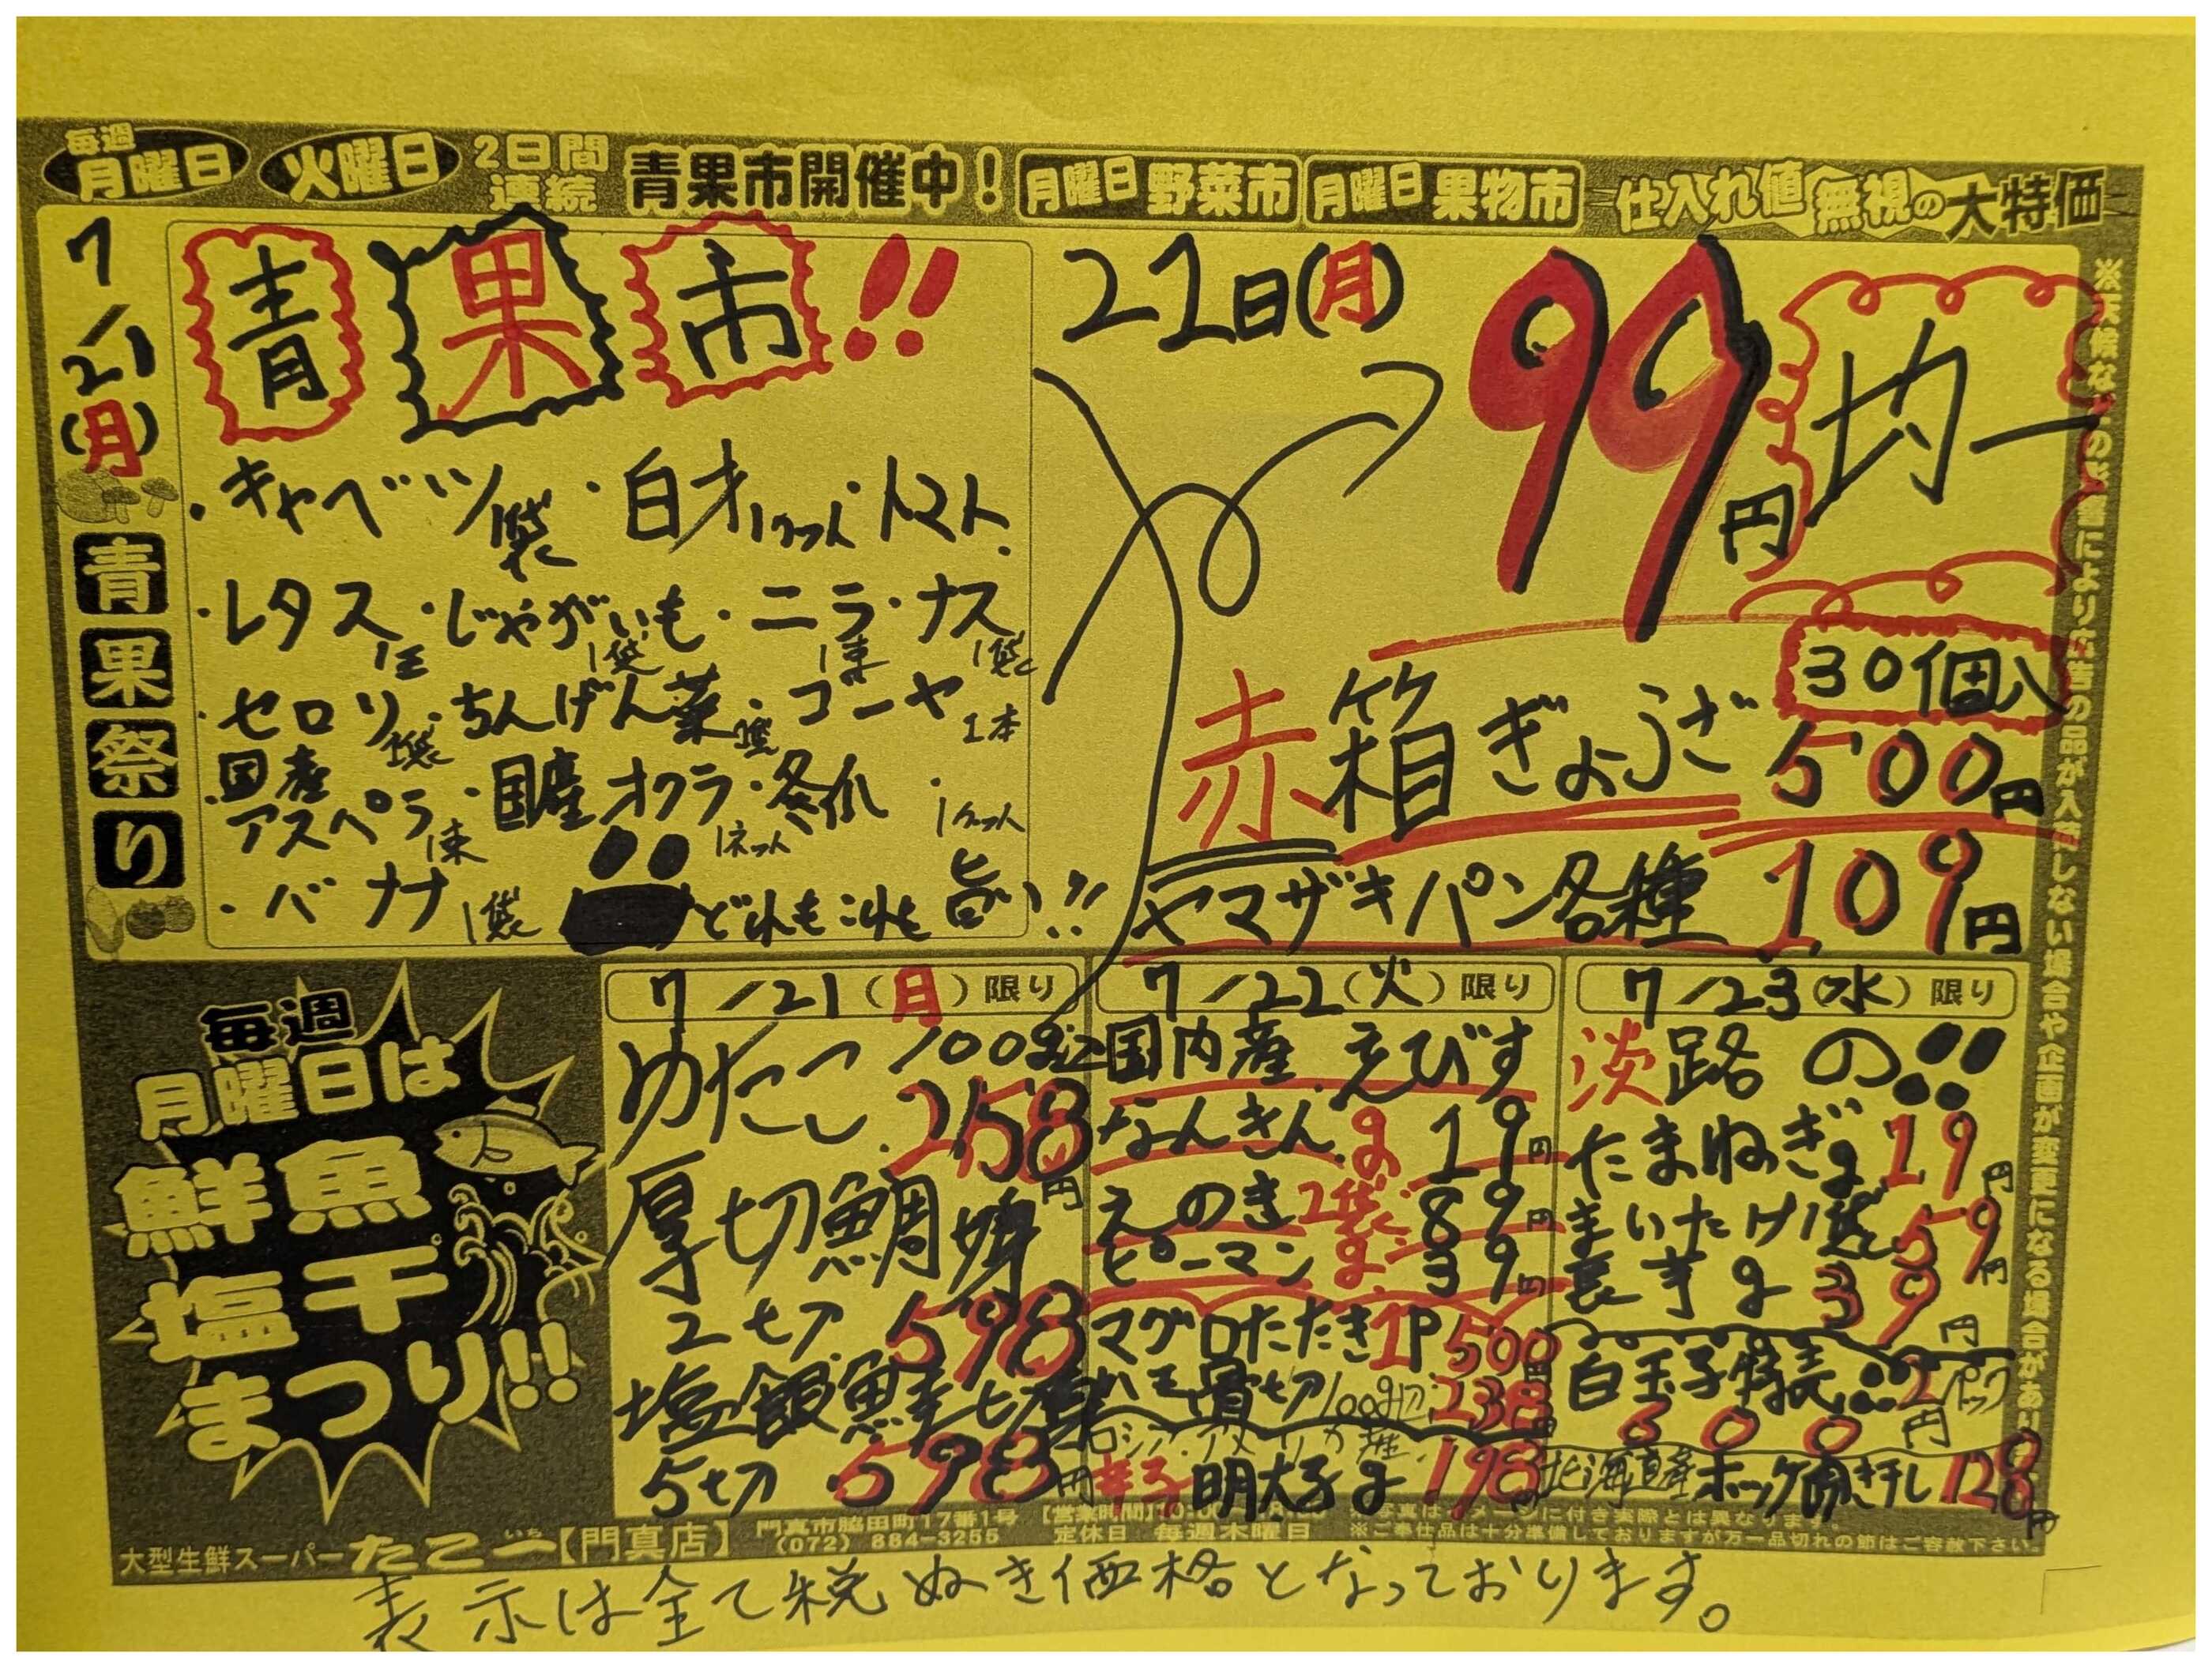 毎週
月曜日 火曜日 2日間連続 青果市開催中！ 月曜日 野菜市 月曜日 果物市 仕入れ値無視の大特価
7/21(月)
青果祭り
青果市!!
・キャベツ1袋・白才1カット・トマト
・レタス1玉・じゃがいも1袋・ニラ1束・ナス1袋
・セロリ1袋・ちんげん菜1袋・ゴーヤ1本
・国産アスパラ1束・国産オクラ1ネット・冬瓜1カット
・バナナ1袋 どれもこれも旨い!!
21日(月)
99円均一
赤箱ぎょうざ 30個入 500円
ヤマザキパン各種 109円
毎週
月曜日は
鮮魚
塩干
まつり!!
7/21(月)限り
ゆたこ 100g 258円
厚切鯛
2切 598
塩銀鮭切
5切 598円
7/22(火)限り
国内産 えびす
なんきん g 19円
えのき 2袋 89円
ピーマン g 39円
マグロたたき 1P 500円
ハモ骨切 100g 238
ロシア・アメリカ産
辛子明太子 g 198
7/23(水)限り
淡路の!!
たまねぎ g 19円
まいたけ 1袋 59円
長芋 g 39円
白玉子 2パック
600円
北海道産 ホッケ開き干し 128円
大型生鮮スーパー たこ一 いち 【門真店】
門真市脇田町17番1号
(072) 884-3255
【営業時間】
定休日 毎週木曜日
※写真はイメージに付き実際とは異なります。
※ご奉仕品は十分準備しておりますが万一品切れの節はご容赦下さい。
により広告の品が入荷しない場合や企画が変更になる場合があり
表示は全て税ぬき価格となっております。